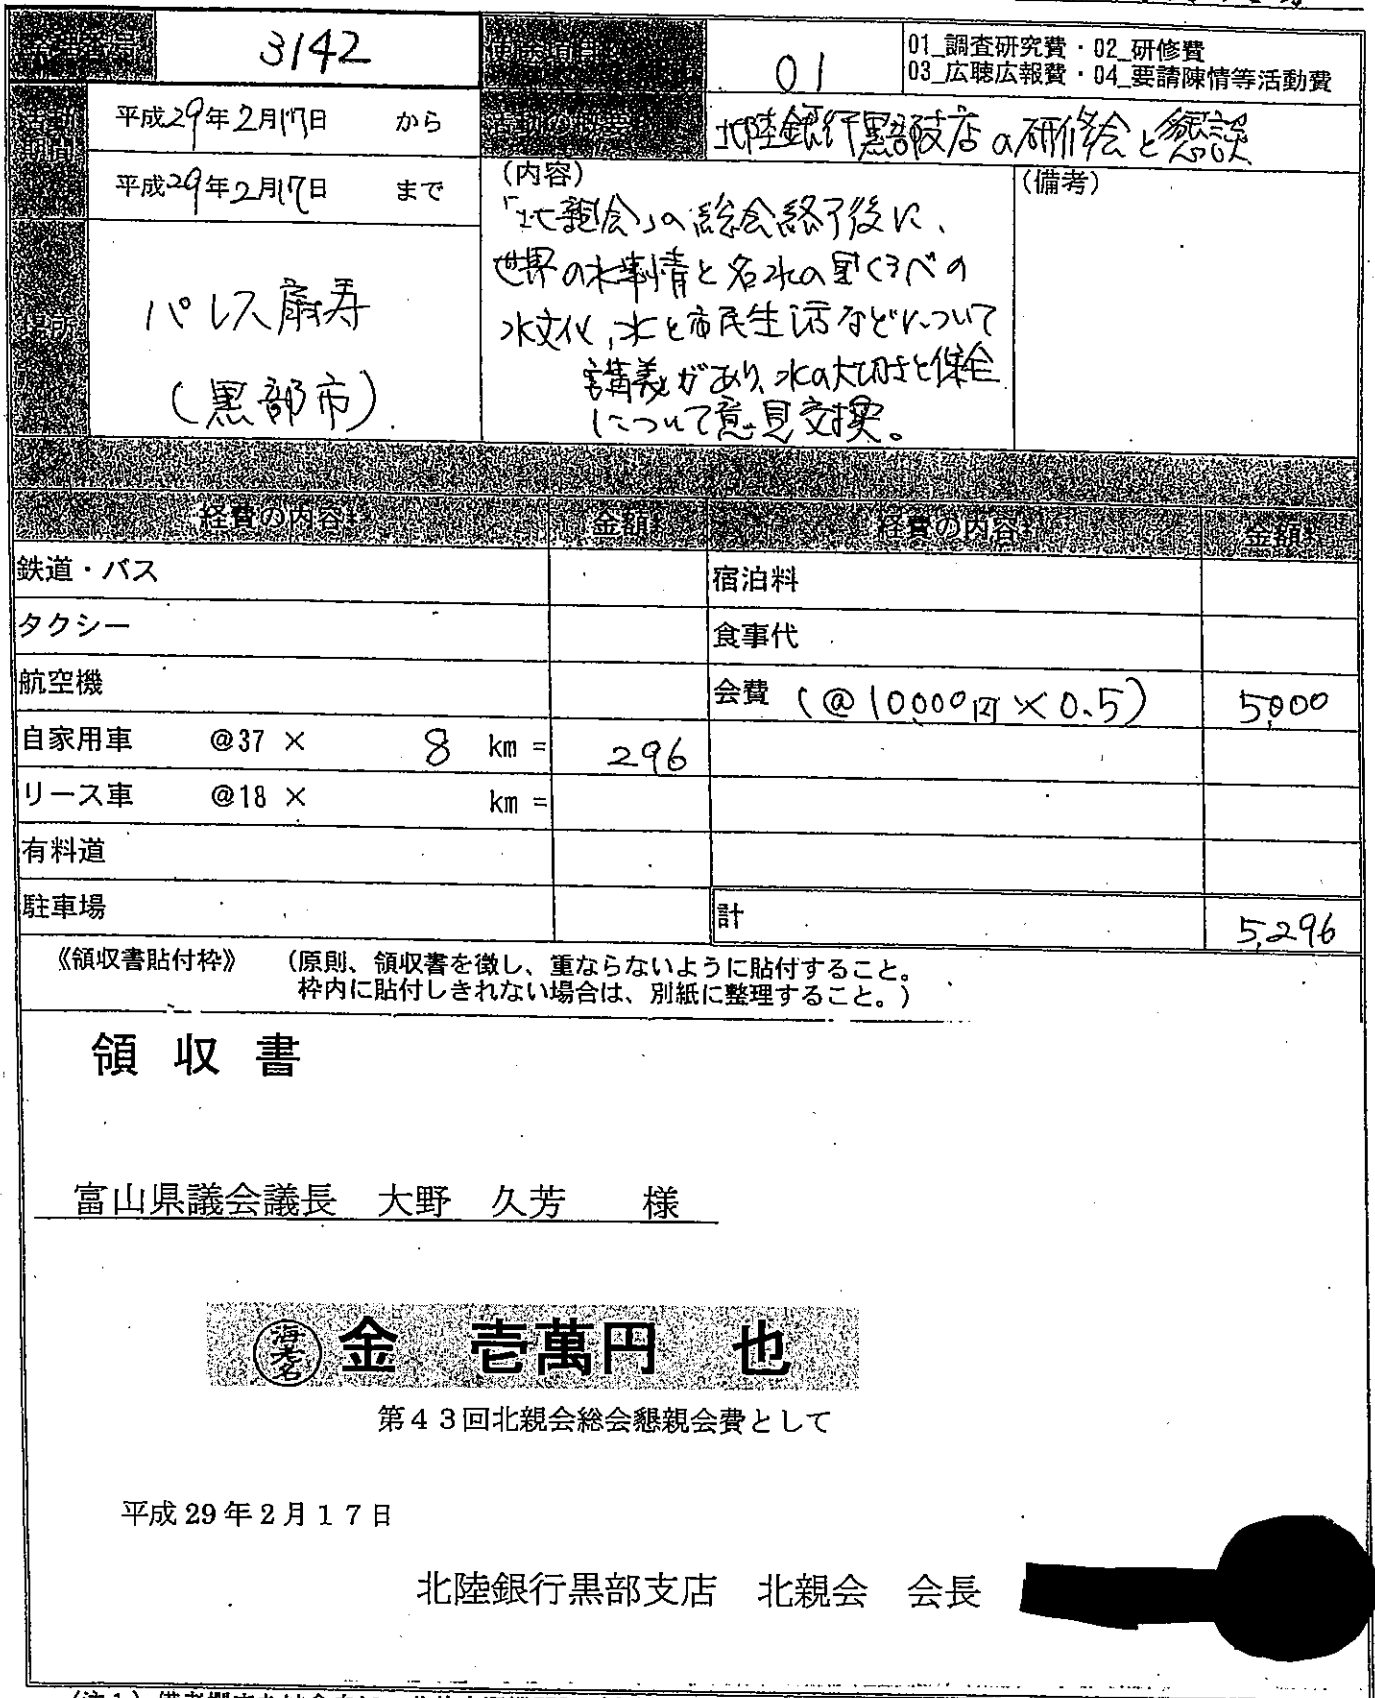 3142
01
01_調査研究費・02_研修費
03_広聴広報費・04_要請陳情等活動費
平成29年2月17日 から
北陸銀行黒部支店の研修会と懇談
平成29年2月17日 まで
(内容)
(備考)
「北親会」の総会終了後に、
世界の水事情と名水の里くろべの
水文化、水と市民生活などについて
講義があり、水の大切さと保全
について意見交換。
場所
パレス扇寿
(黒部市)
経費の内容
金額
経費の内容
金額
鉄道・バス
宿泊料
タクシー
食事代
航空機
会費 (@10,000円×0.5) 5,000
自家用車 @37 × 8 km = 296
リース車 @18 × km =
有料道
駐車場
計 5,296
《領収書貼付枠》 (原則、領収書を徴し、重ならないように貼付すること。
枠内に貼付しきれない場合は、別紙に整理すること。)
領収書
富山県議会議長 大野 久芳 様
海老名
金 壱萬円 也
第43回北親会総会懇親会費として
平成29年2月17日
北陸銀行黒部支店 北親会 会長